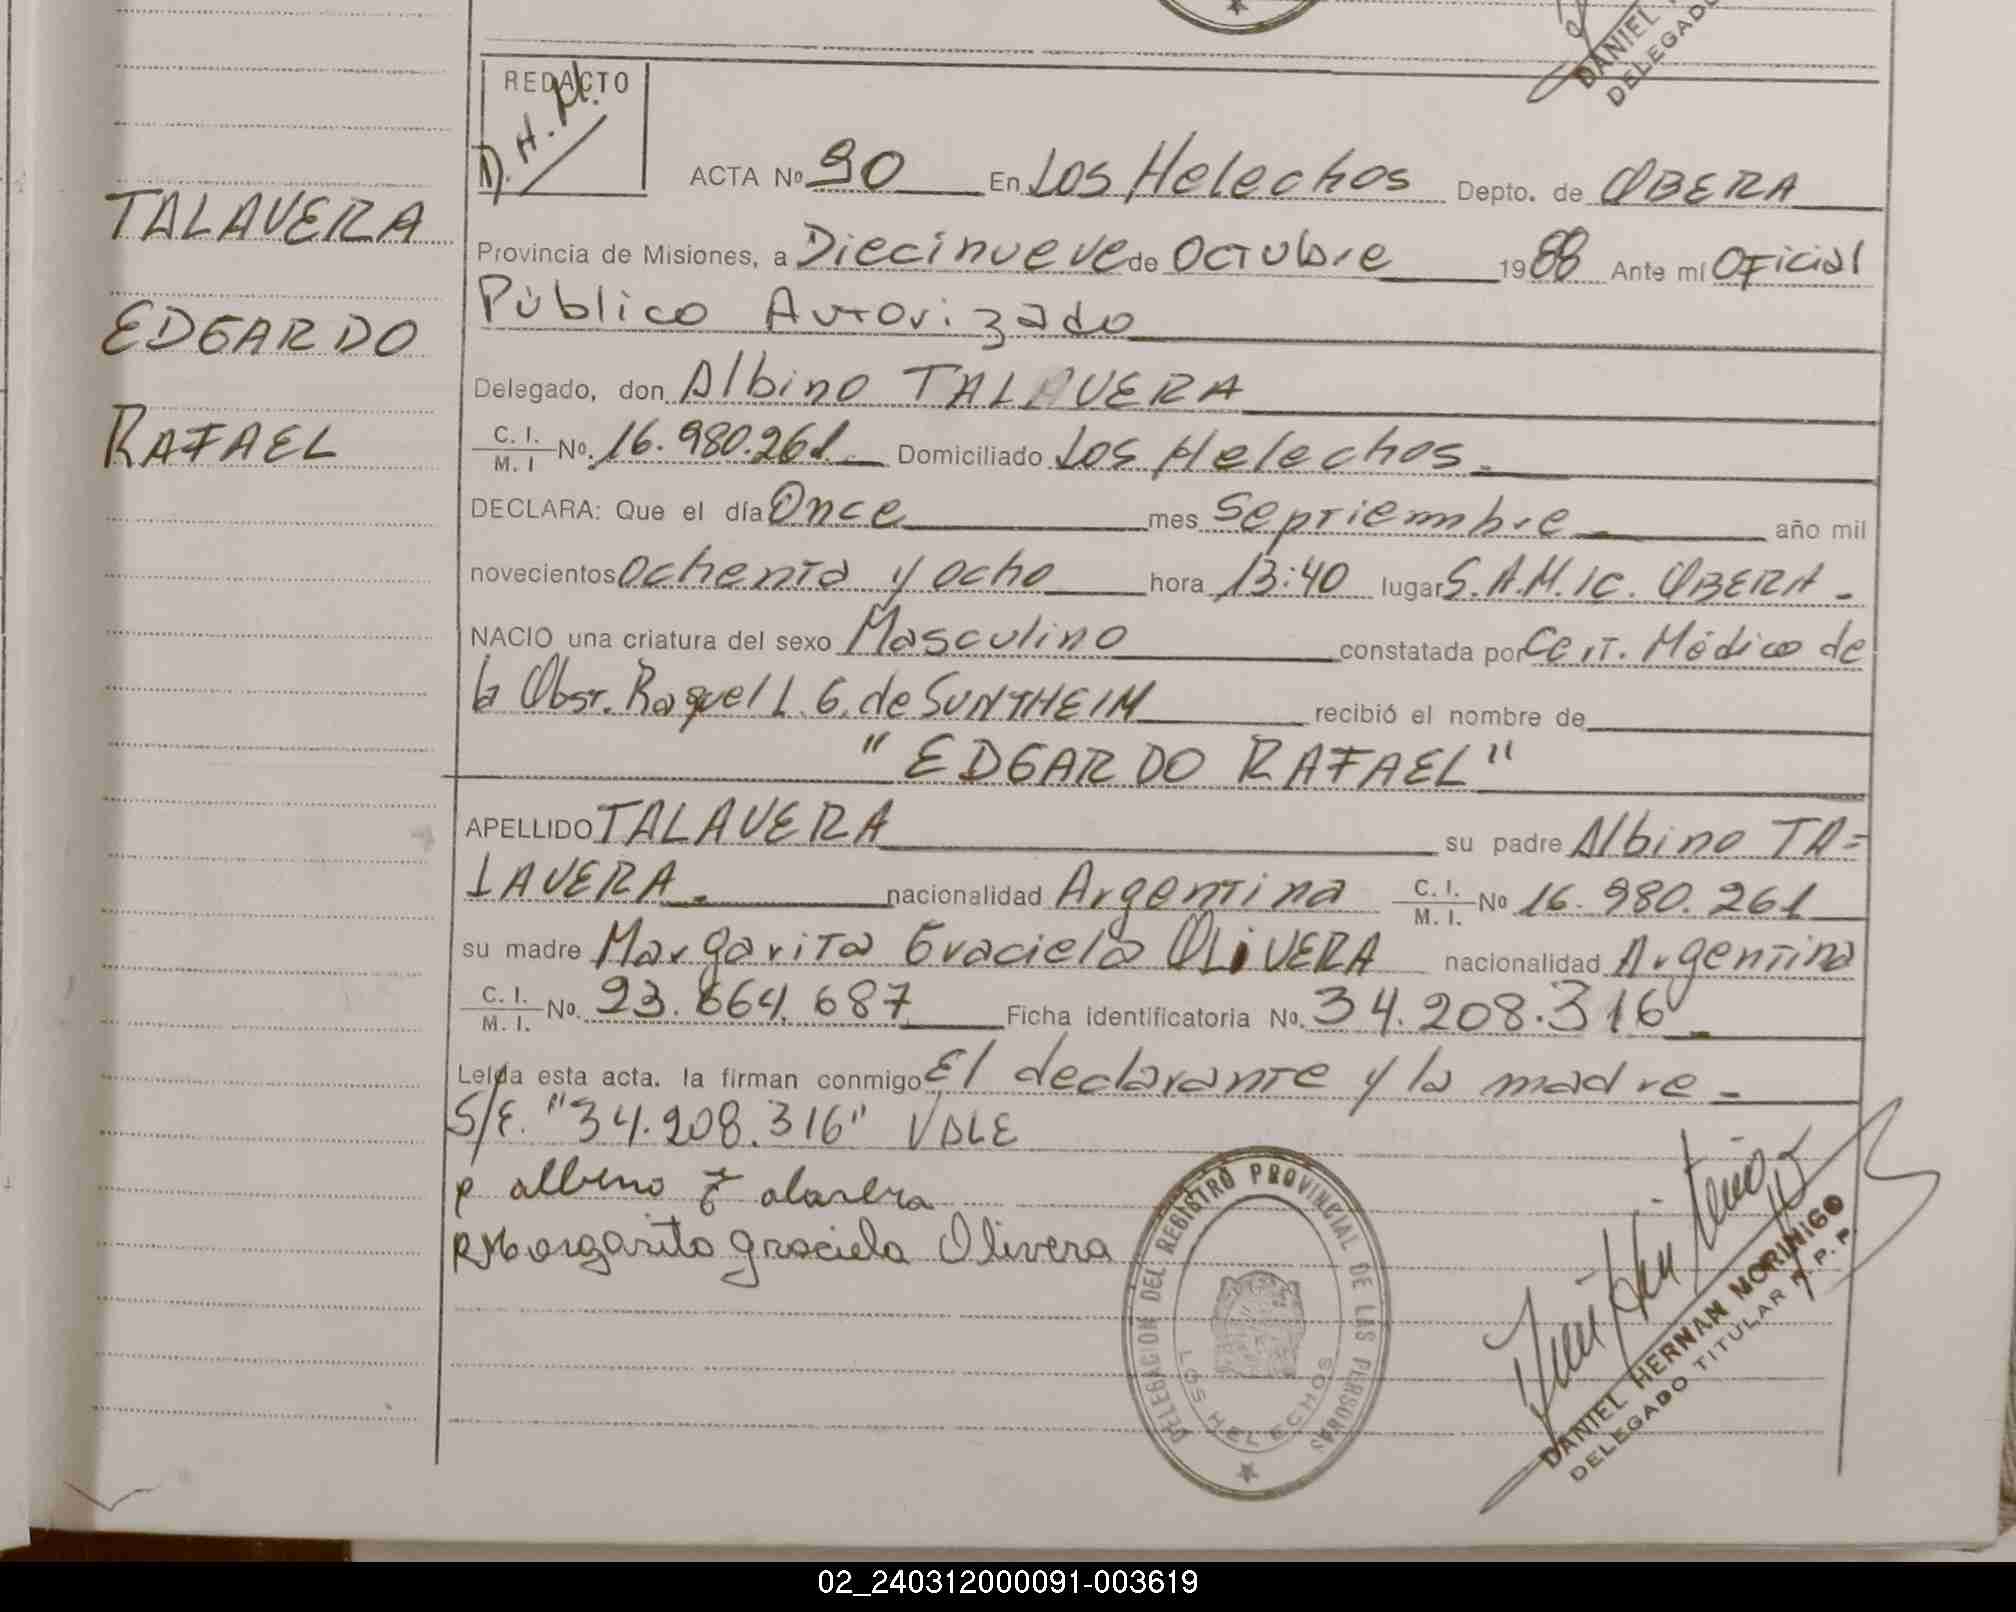 DANIEL
DELEGADO
REDACTO
D. H. M.
ACTA Nº 90 En Los Helechos Depto. de OBERA
TALAVERA
Provincia de Misiones, a Diecinueve de Octubre 1988 Ante mí Oficial
Público Autorizado
EDGARDO
Delegado, don Albino TALAVERA
RAFAEL
C. I. / M. I Nº. 16.980.261 Domiciliado Los Helechos.
DECLARA: Que el día Once mes Septiembre año mil
novecientos ochenta y ocho hora 13:40 lugar S.A.M.IC. OBERA.
NACIO una criatura del sexo Masculino constatada por Cert. Médico de
la Obst. Raquel L. G. de SUNTHEIM recibió el nombre de
"EDGARDO RAFAEL"
APELLIDO TALAVERA su padre Albino TA=
LAVERA. nacionalidad Argentina C. I. / M. I. Nº 16.980.261
su madre Margarita Graciela OLIVERA nacionalidad Argentina
C. I. / M. I. Nº. 23.664.687 Ficha identificatoria Nº. 34.208.316
Leída esta acta. la firman conmigo El declarante y la madre
S/E. "34.208.316" VALE
albino talavera
Margarita graciela Olivera
DELEGACION DEL REGISTRO PROVINCIAL DE LAS PERSONAS
LOS HELECHOS
DANIEL HERNAN MORINIGO
DELEGADO TITULAR R.P.P.
02_240312000091-003619